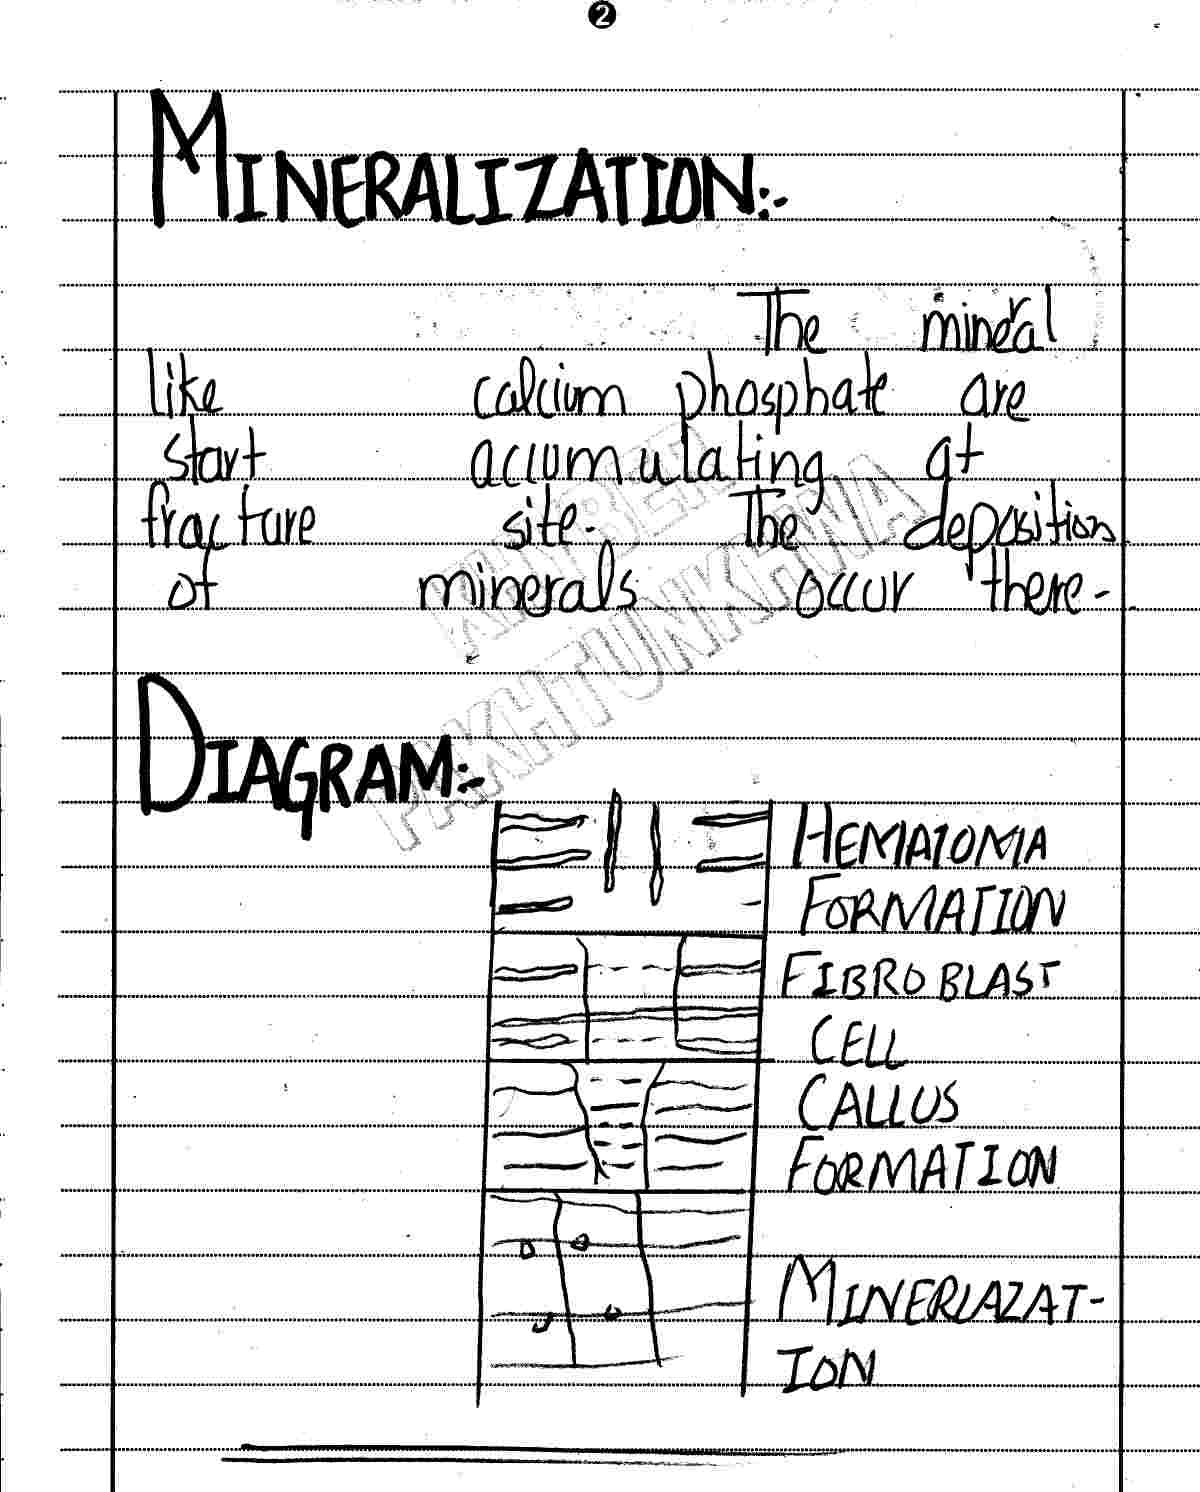 2
MINERALIZATION:-
The mineral
like calcium phosphate are
start accumulating at
fracture site. The deposition
of minerals occur there-
KHYBER
PAKHTUNKHWA
DIAGRAM:-
HEMATOMA
FORMATION
FIBROBLAST
CELL
CALLUS
FORMATION
MINERLAZAT-
ION